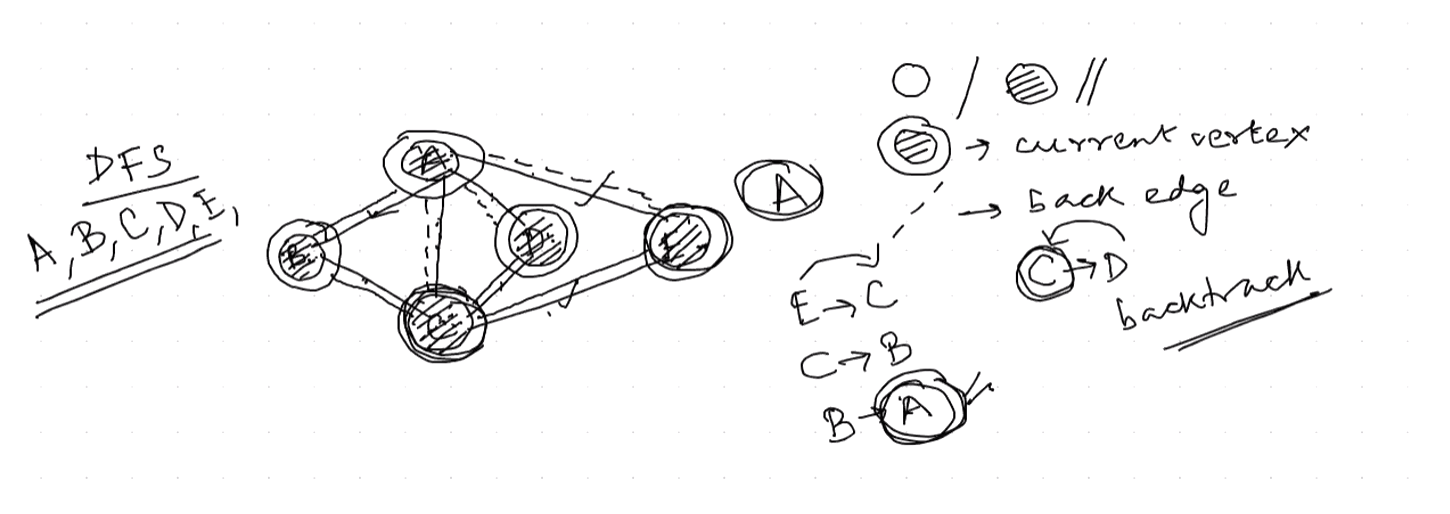 DFS
A, B, C, D, E,
A
B
D
C
E
A
→ current vertex
→ back edge
C → D
backtrack
E → C
C → B
B → A